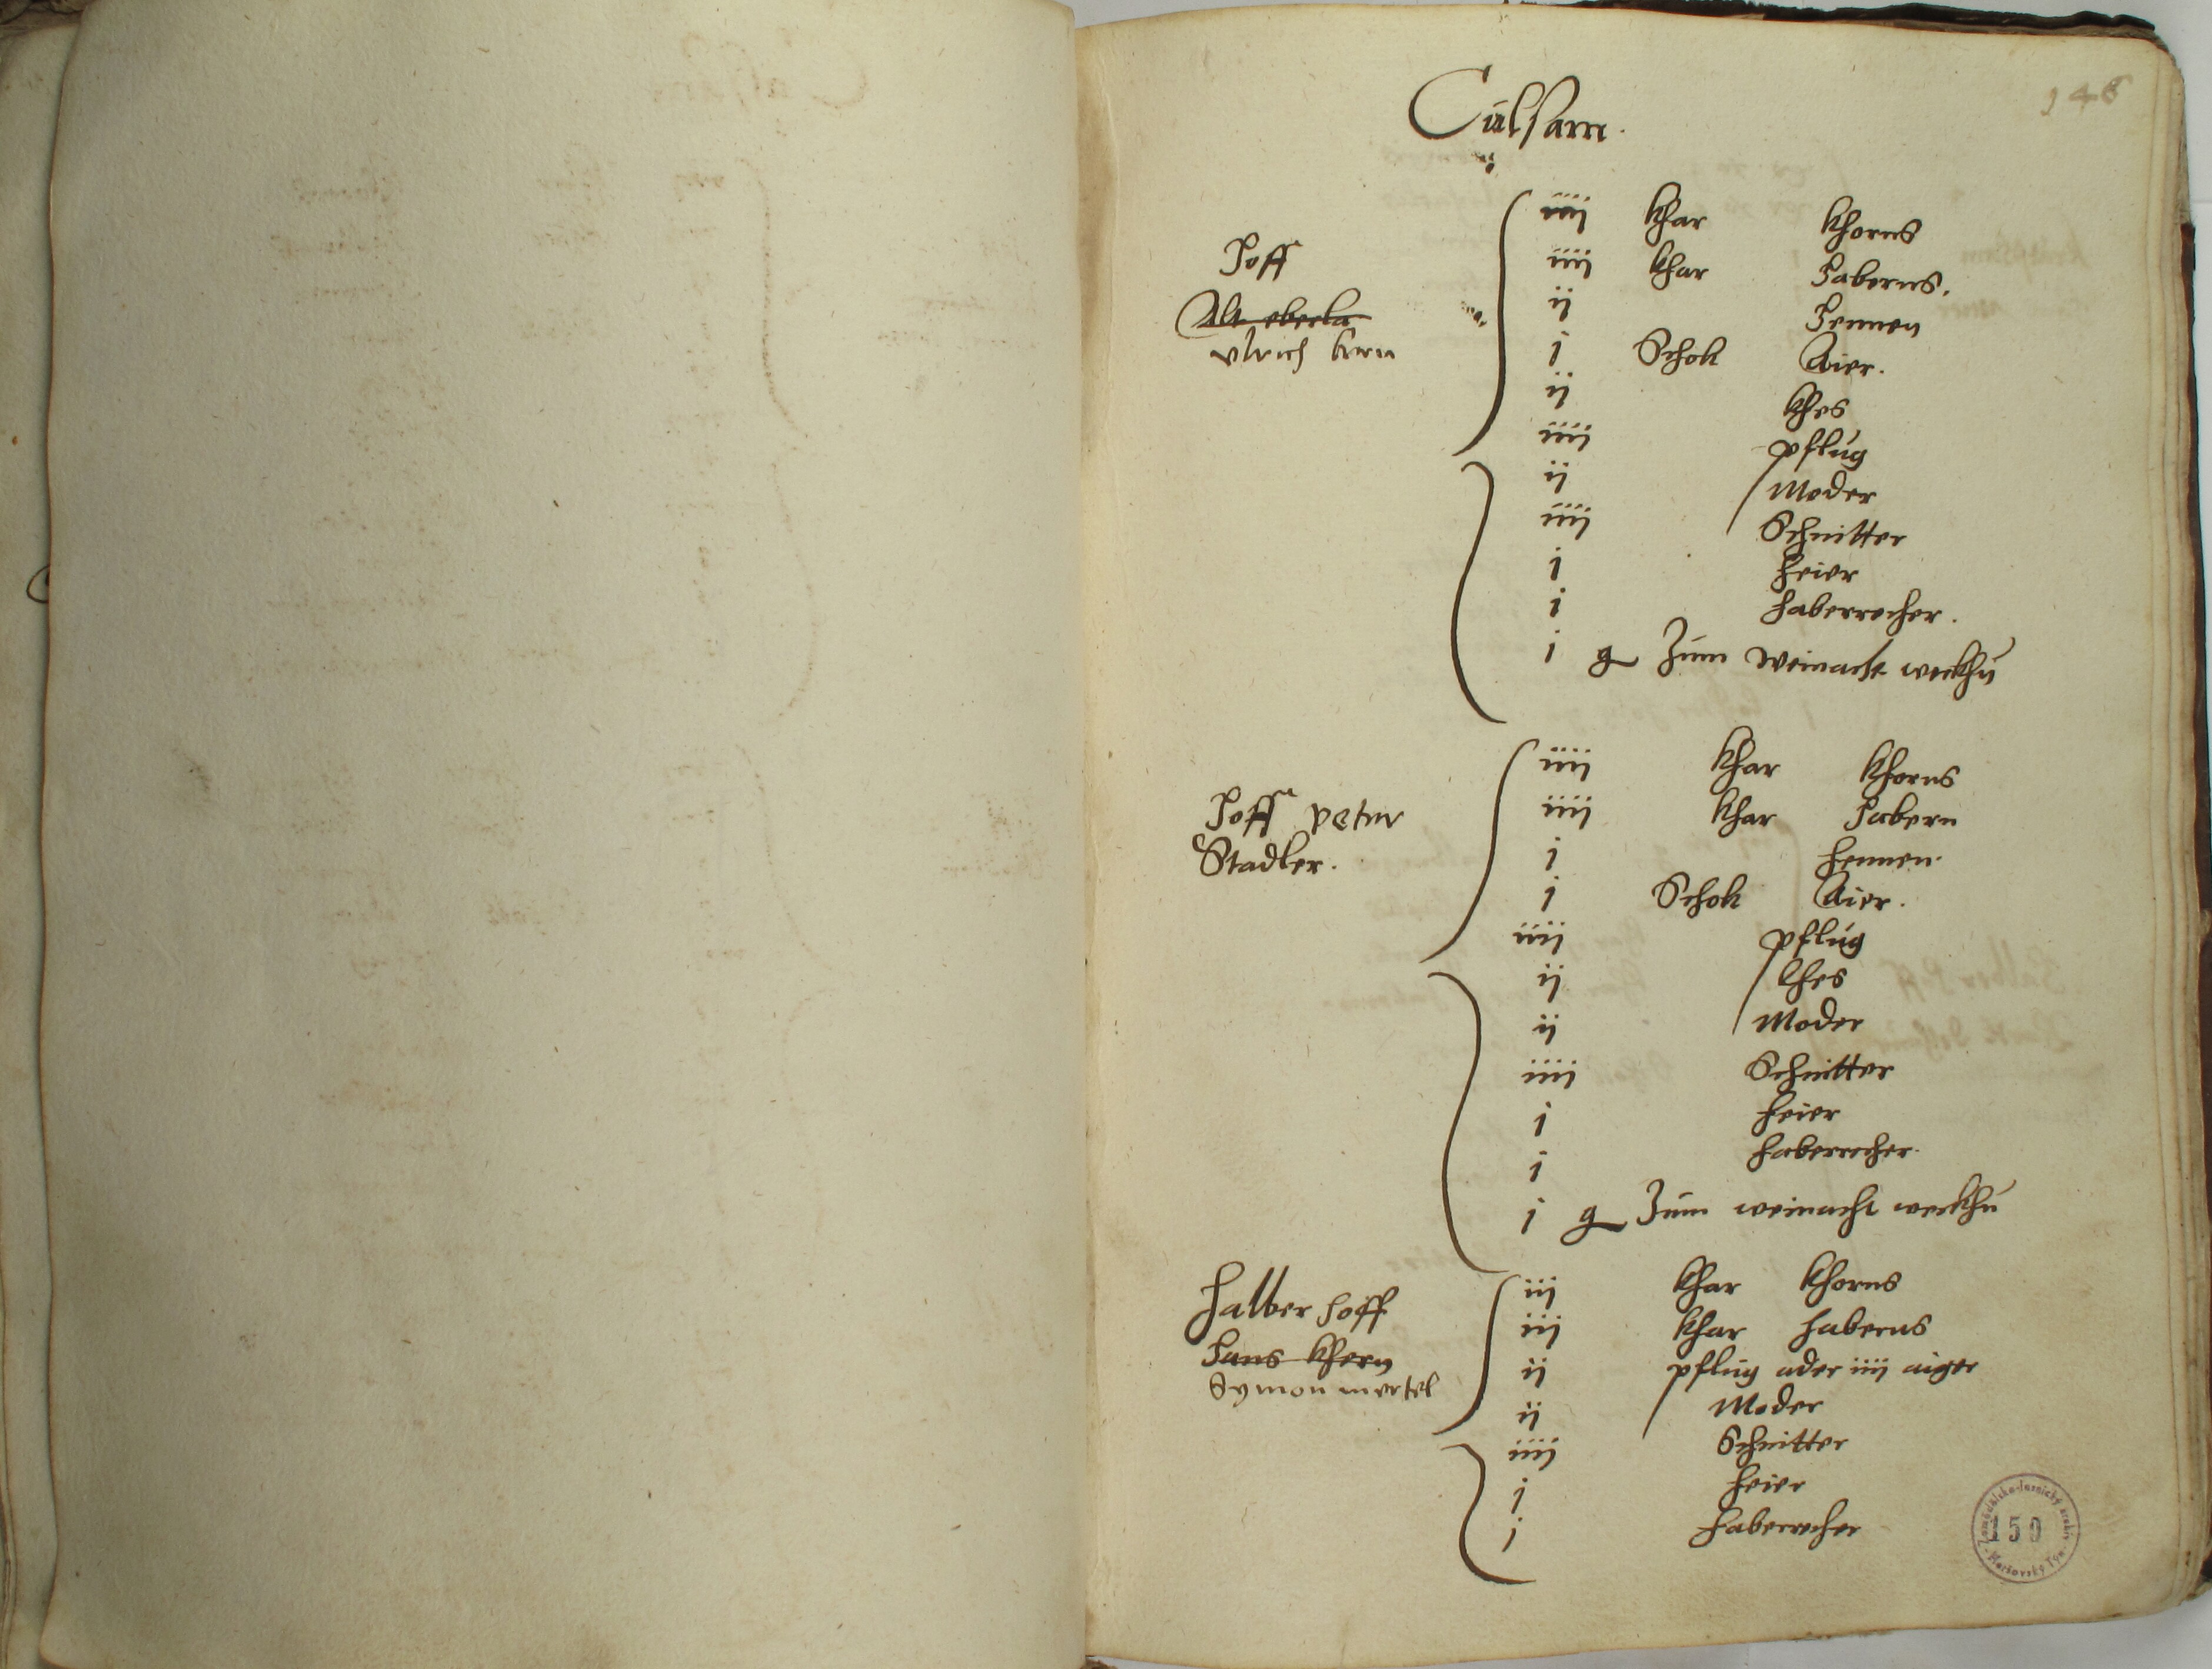 146
Culsam.
Hoff
Alt eberla
ulrich kern
iiij khar khorns
iiij khar Haberns.
ij Hennen
j Schok Aier.
ij khes
iiij pflug
ij Moder
iiij Schnitter
j heier
j haberrecher.
j g Zum Weinacht weckhn
Hoff peter
Stadler.
iiij khar khorns
iiij khar Habern
j hennen.
j Schok Aier.
iiij pflug
ij khes
ij Moder
iiij Schnitter
j heier
j haberrecher.
j g Zum weinacht weckhn
halber hoff
Hans khern
Symon mertel
iij khar khorns
iij khar haberns
ij pflug ader iiij aiger
ij Moder
iiij Schnitter
j heier
j haberrecher
Zemědělsko-lesnický archiv
150
Horšovský Týn